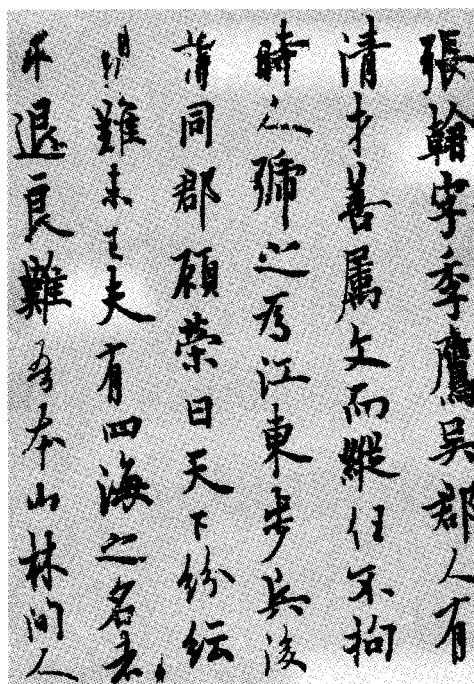 張翰字季鷹吳郡人有
清才善属文而縱任不拘
時人號之為江東步兵後
謂同郡顧榮曰天下紛紜
禍難未已夫有四海之名者
求退良難吾本山林間人